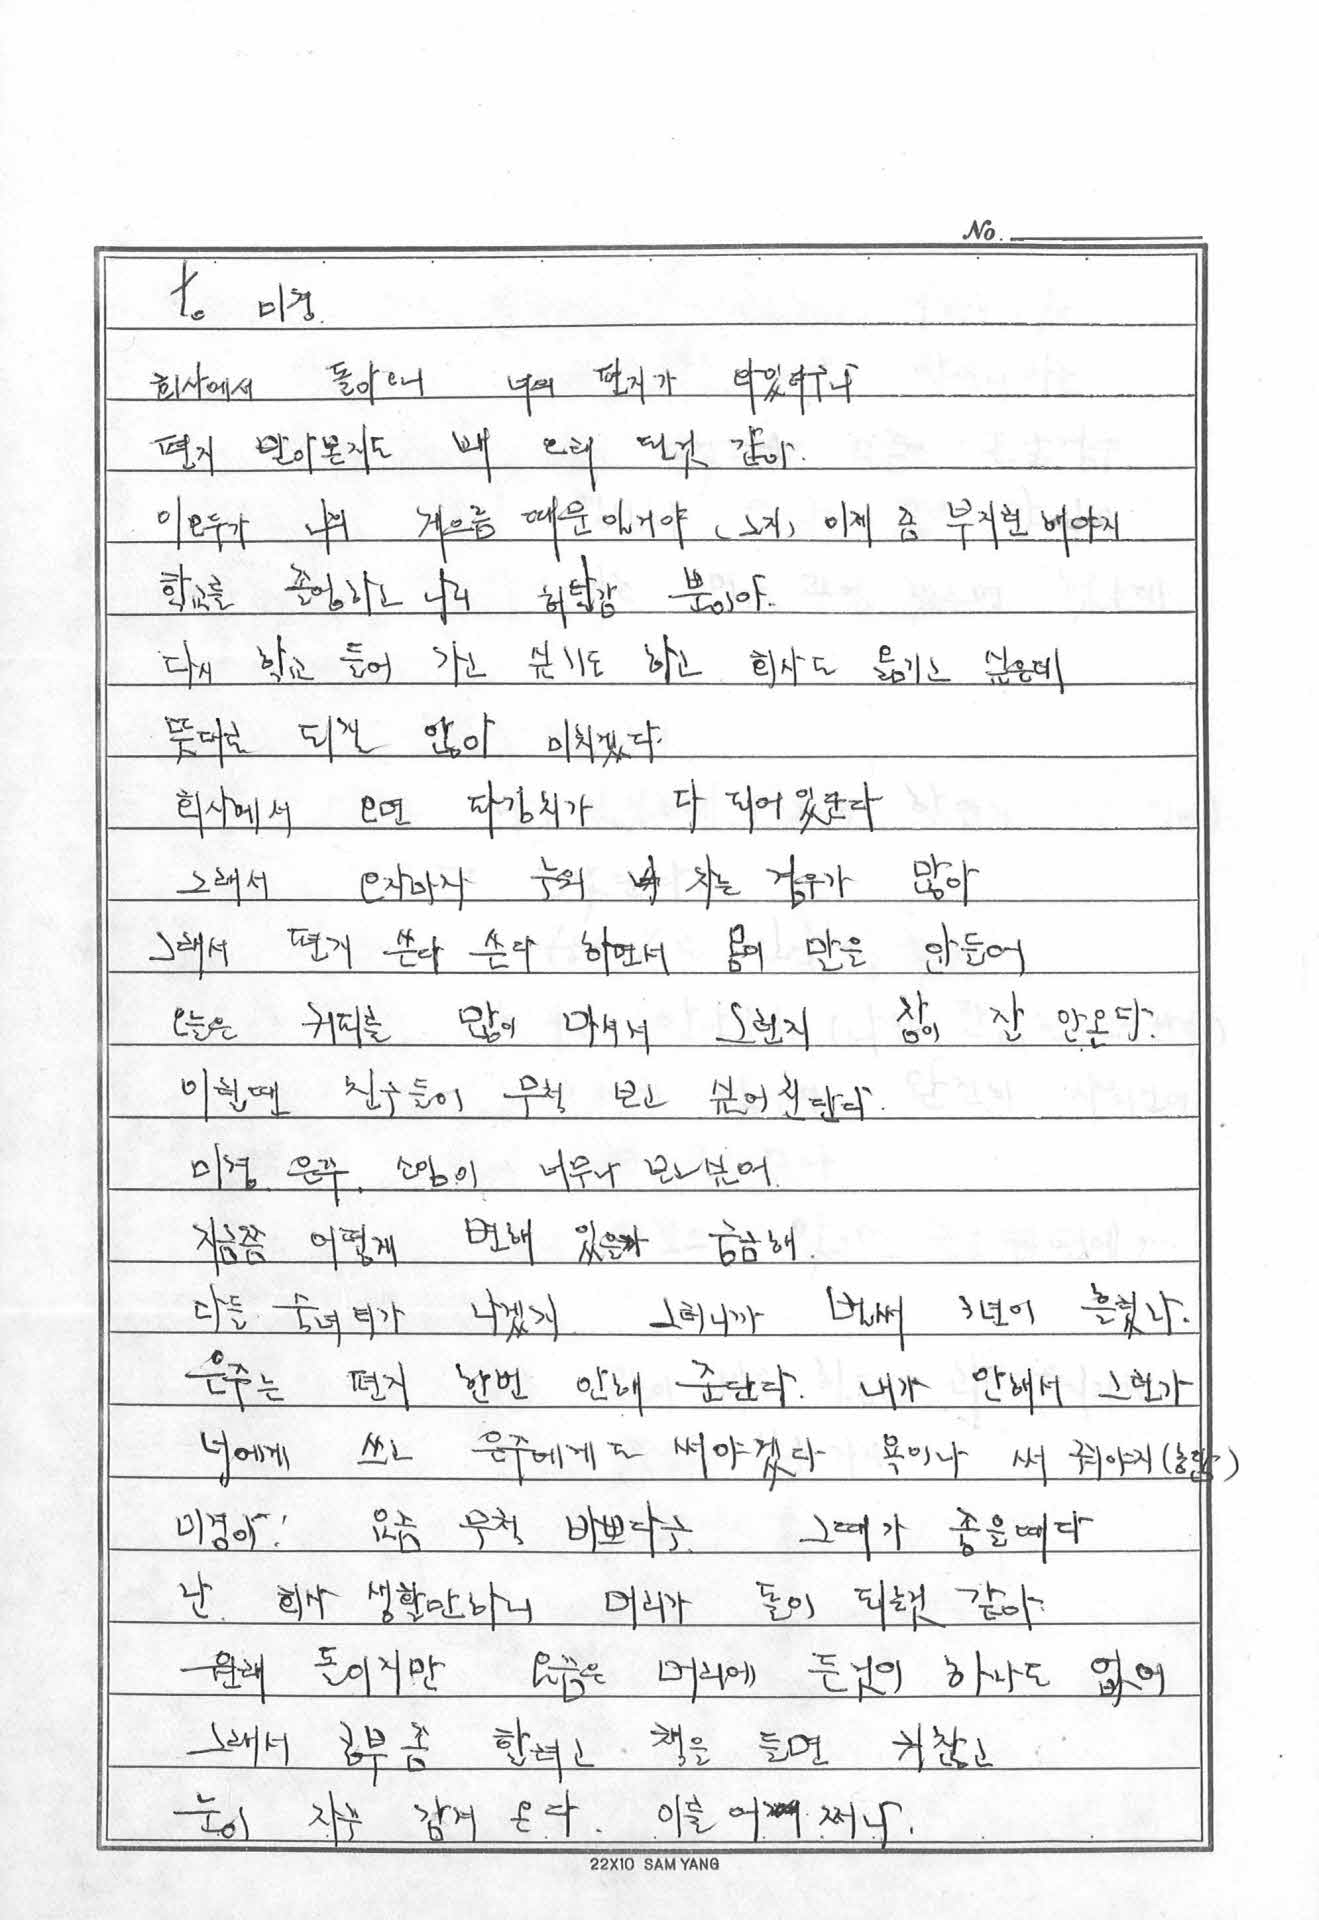 No.
to 미경.
회사에서 돌아오니 너의 편지가 와있더구나
편지 받아본지도 꽤 오래 된것 같아.
이모두가 나의 게으름 때문일거야 (그지) 이제 좀 부지런해야지
학교를 졸업하고 나니 허탈감 뿐이야.
다시 학교 들어 가고 싶기도 하고 회사도 옮기고 싶은데
뜻대로 되질 않아 미치겠다.
회사에서 오면 파김치가 다 되어 있단다
그래서 오자마자 누워 자는 경우가 많아
그래서 편지 쓴다 쓴다 하면서 몸이 말을 안들어
오늘은 커피를 많이 마셔서 그런지 잠이 잘 안온다.
이럴땐 친구들이 무척 보고 싶어진단다.
미경, 은주, 소영이 너무나 보고싶어.
지금쯤 어떻게 변해 있을까 궁금해.
다들 숙녀티가 나겠지 그러니까 벌써 3년이 흘렀나.
은주는 편지 한번 안해 준단다. 내가 안해서 그런가
너에게 쓰고 은주에게도 써야겠다 욕이나 써 줘야지(농담)
미경아! 요즘 무척 바쁘다구 그때가 좋을때다
난 회사 생활만하니 머리가 돌이 되는것 같아.
원래 돌이지만 요즘은 머리에 든것이 하나도 없어
그래서 공부좀 할려고 책을 들면 귀찮고
눈이 자꾸 감겨 온다. 이를 어쩌나.
22X10 SAM YANG